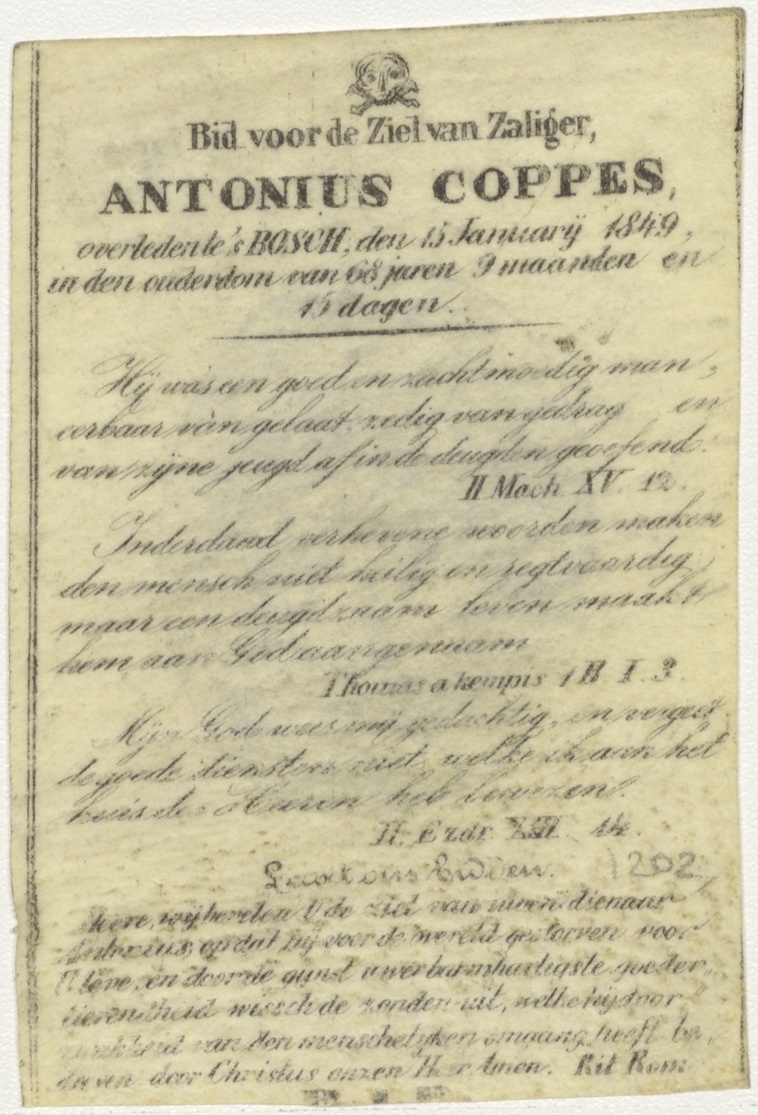 Bid voor de Ziel van Zaliger,
ANTONIUS COPPES,
overleden te 's BOSCH, den 15 Januarij 1849,
in den ouderdom van 68 jaren 9 maanden en
15 dagen.
Hij was een goed en zachtmoedig man,
eerbaar van gelaat, zedig van gedrag en
van zijne jeugd af in de deugden geoefend.
II Mach. XV. 12.
Inderdaad verhevene woorden maken
den mensch niet heilig en regtvaardig
maar een deugdzaam leven maakt
hem aan God aangenaam
Thomas a kempis 1 B I. 3.
Mijn God wees mij gedachtig, en vergeet
de goede diensten niet, welke ik aan het
huis des Heeren heb bewezen.
II. Ezdr. XIII. 14.
Laat ons bidden. 1202
Heere, wij bevelen U de ziel van uwen dienaar
Antonius, opdat hij voor de wereld gestorven voor
U leve, en door de gunst uwer barmhartigste goeder-
tierentheid wissch de zonden uit, welke hij door
zwakheid van den menschelyken omgang heeft be-
dreven door Christus onzen Heer Amen. Rit Rom.